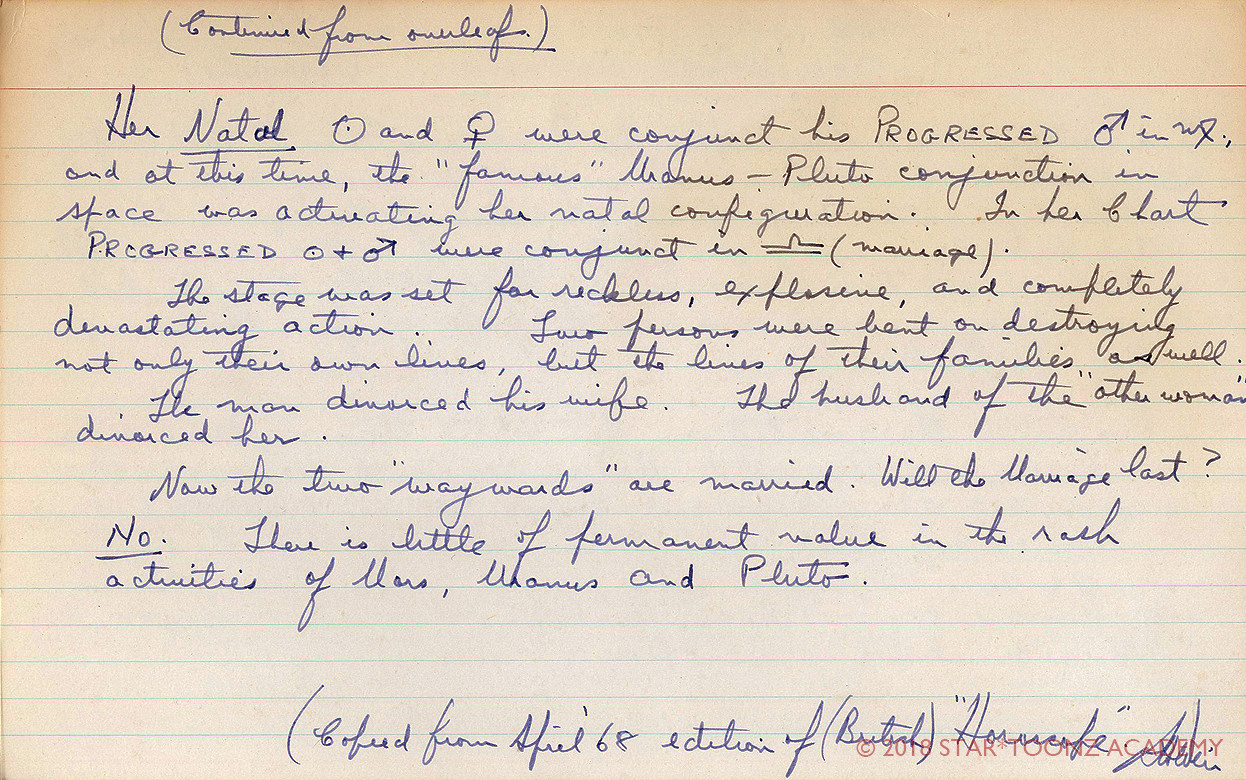 (Continued from overleaf.)
Her Natal ☉ and ♀ were conjunct his PROGRESSED ♂ in ♍;
and at this time, the "famous" Uranus – Pluto conjunction in
space was activating her natal configuration. In her Chart
PROGRESSED ☉ + ♂ were conjunct in ♎ (marriage).
The stage was set for reckless, explosive, and completely
devastating action. Two persons were bent on destroying
not only their own lives, but the lives of their families as well.
The man divorced his wife. The husband of the "other woman"
divorced her.
Now the two "waywards" are married. Will the Marriage last?
No. There is little of permanent value in the rash
activities of Mars, Uranus and Pluto.
(Copied from April '68 edition of (British) "Horoscope".
© 2018 STAR*TOONZ ACADEMY